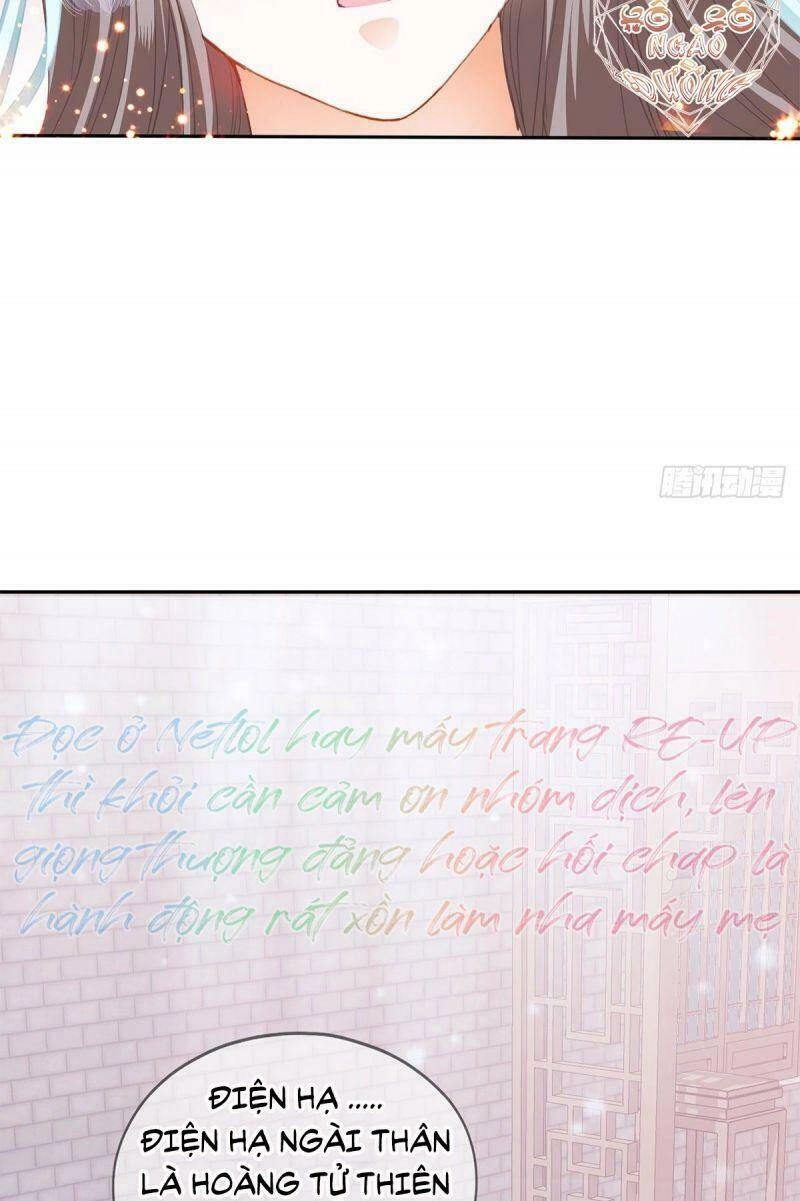 Hố Hố
NGÀO
ĐƯỜNG
腾讯动漫
Đọc ở Netlol hay mấy trang RE-UP
thì khỏi cần cảm ơn nhóm dịch, lên
giọng thượng đẳng hoặc hối chap là
hành động rất xồn làm nha mấy mẹ
ĐIỆN HẠ .....
ĐIỆN HẠ NGÀI THÂN
LÀ HOÀNG TỬ THIÊN